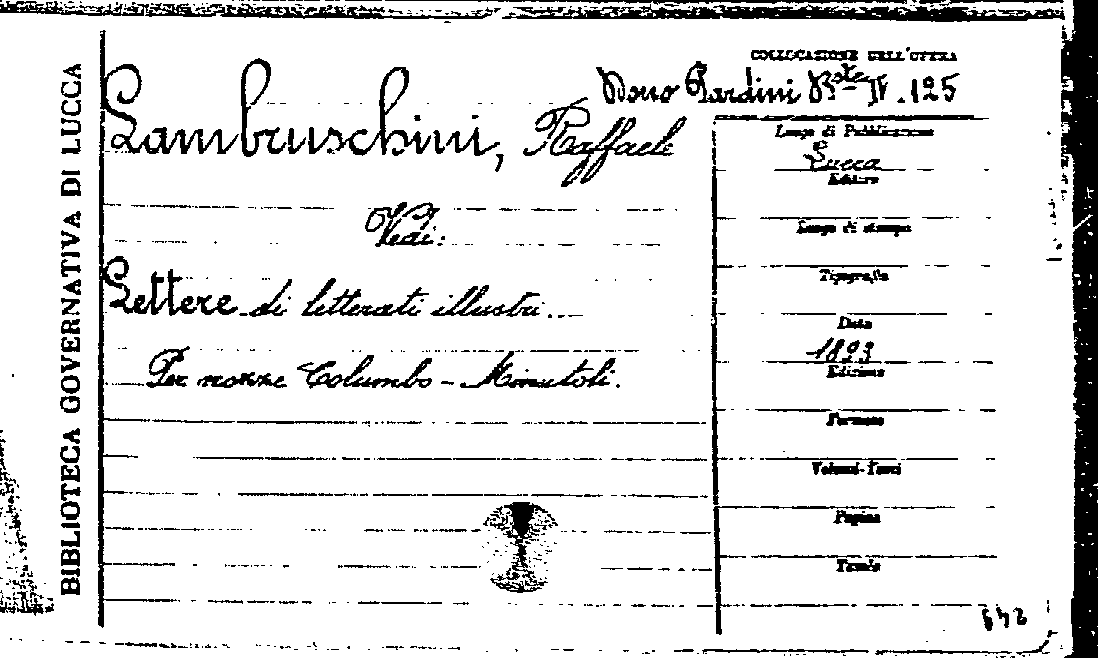 BIBLIOTECA GOVERNATIVA DI LUCCA
COLLOCAZIONE DELL'OPERA
Dono Pardini Bta IV. 125
Lambruschini, Raffaele
Vedi:
Lettere di letterati illustri...
Per nozze Columbo - Minutoli.
Luogo di Pubblicazione
Lucca
Editore
Luogo di stampa
Tipografia
Data
1893
Edizione
Formato
Volumi-Tomi
Pagine
Tavole